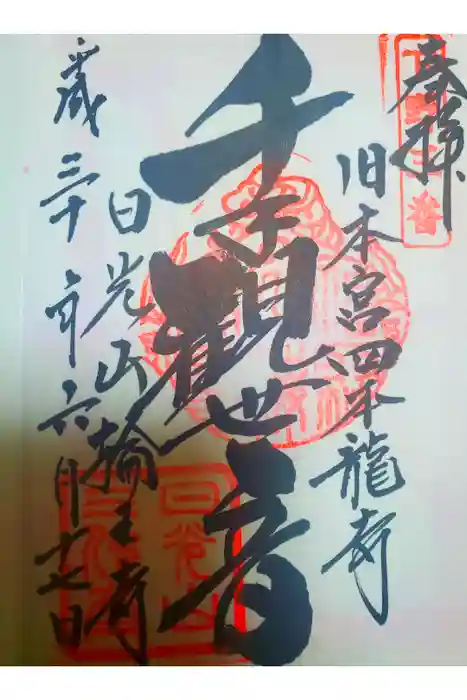 奉拝
旧本宮四本龍寺
千手觀世音
日光山輪王寺
平成三十年六月十七日